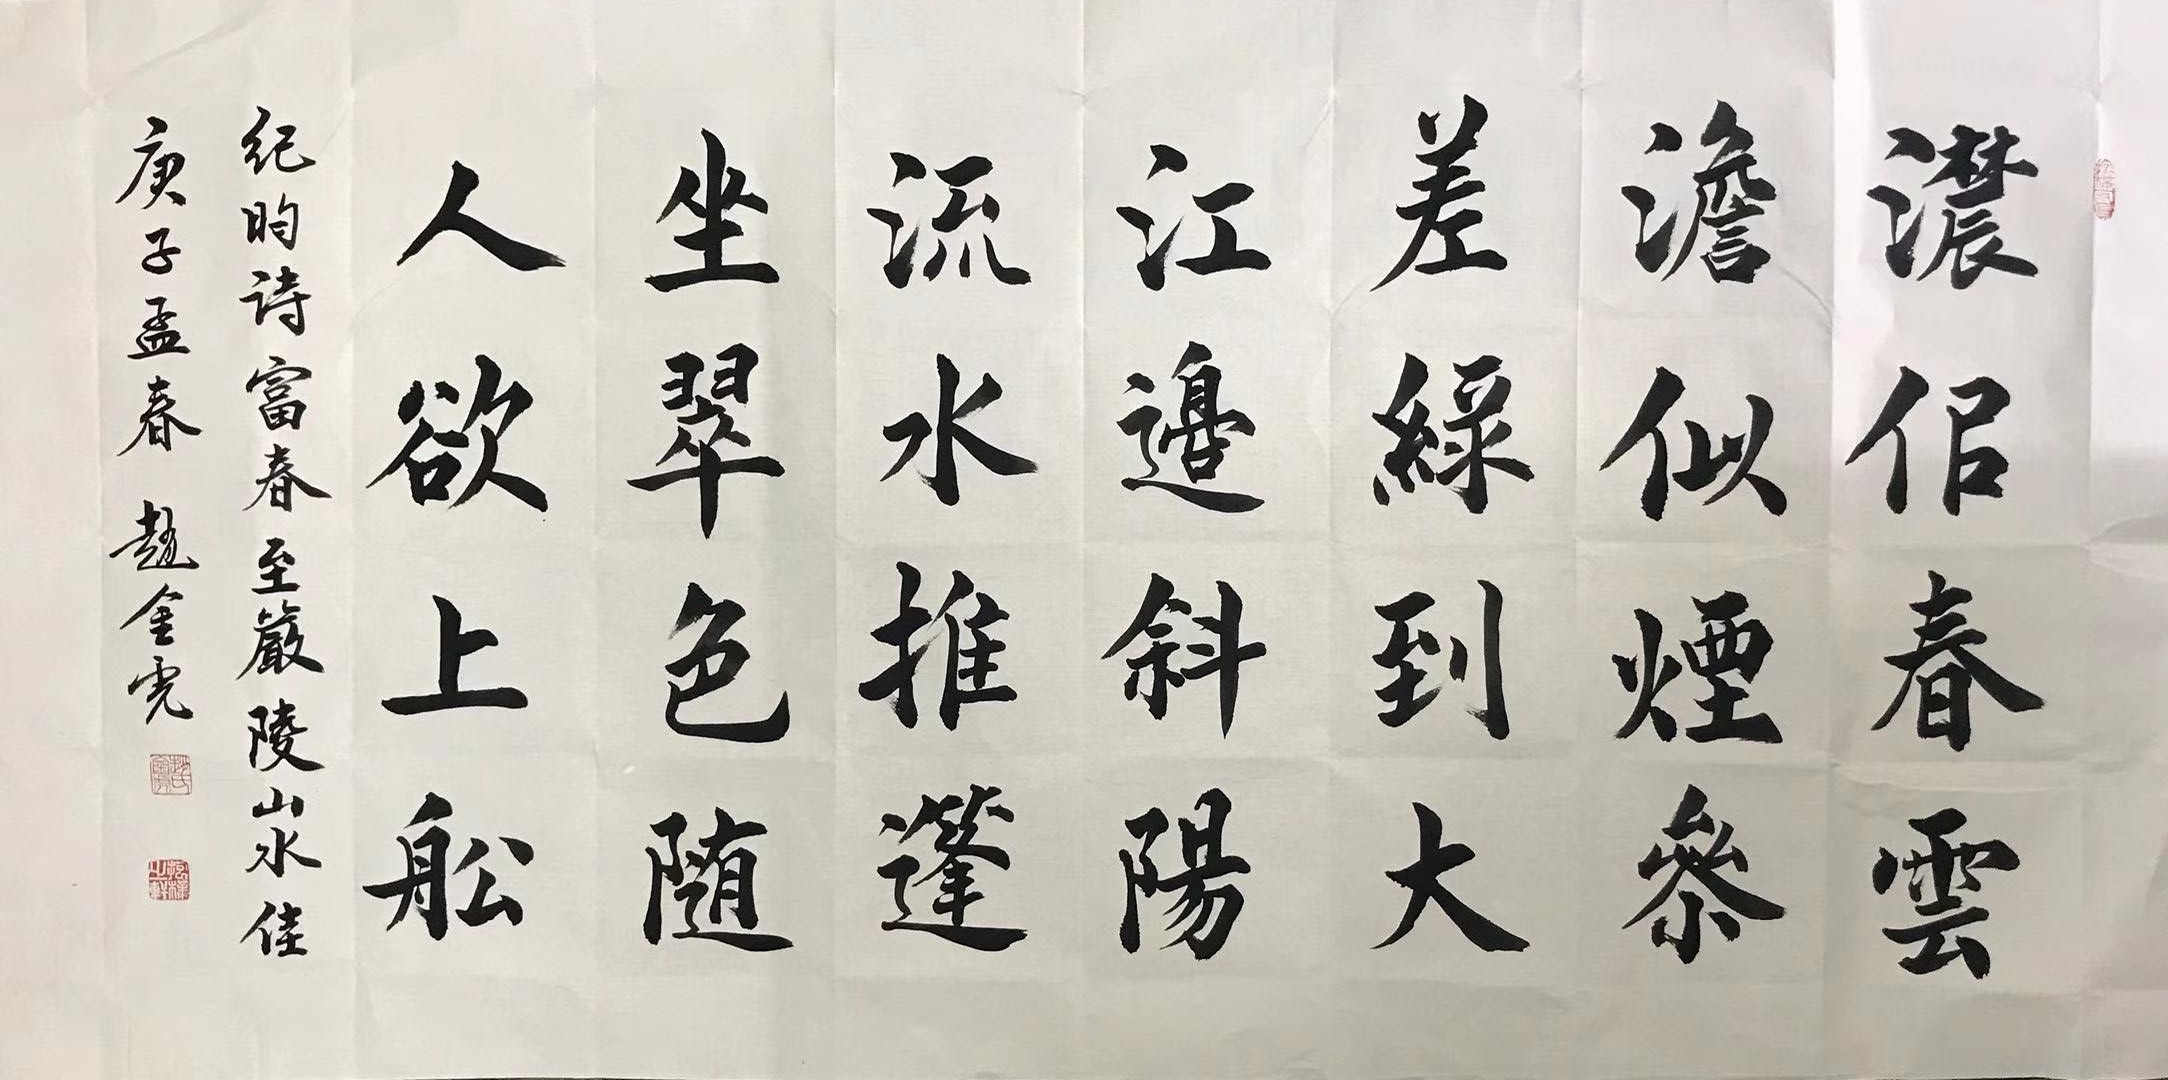 濃佀春雲
澹似煙參
差綠到大
江邊斜陽
流水推篷
坐翠色随
人欲上舩
纪昀詩富春至嚴陵山水佳
庚子孟春 趙金光